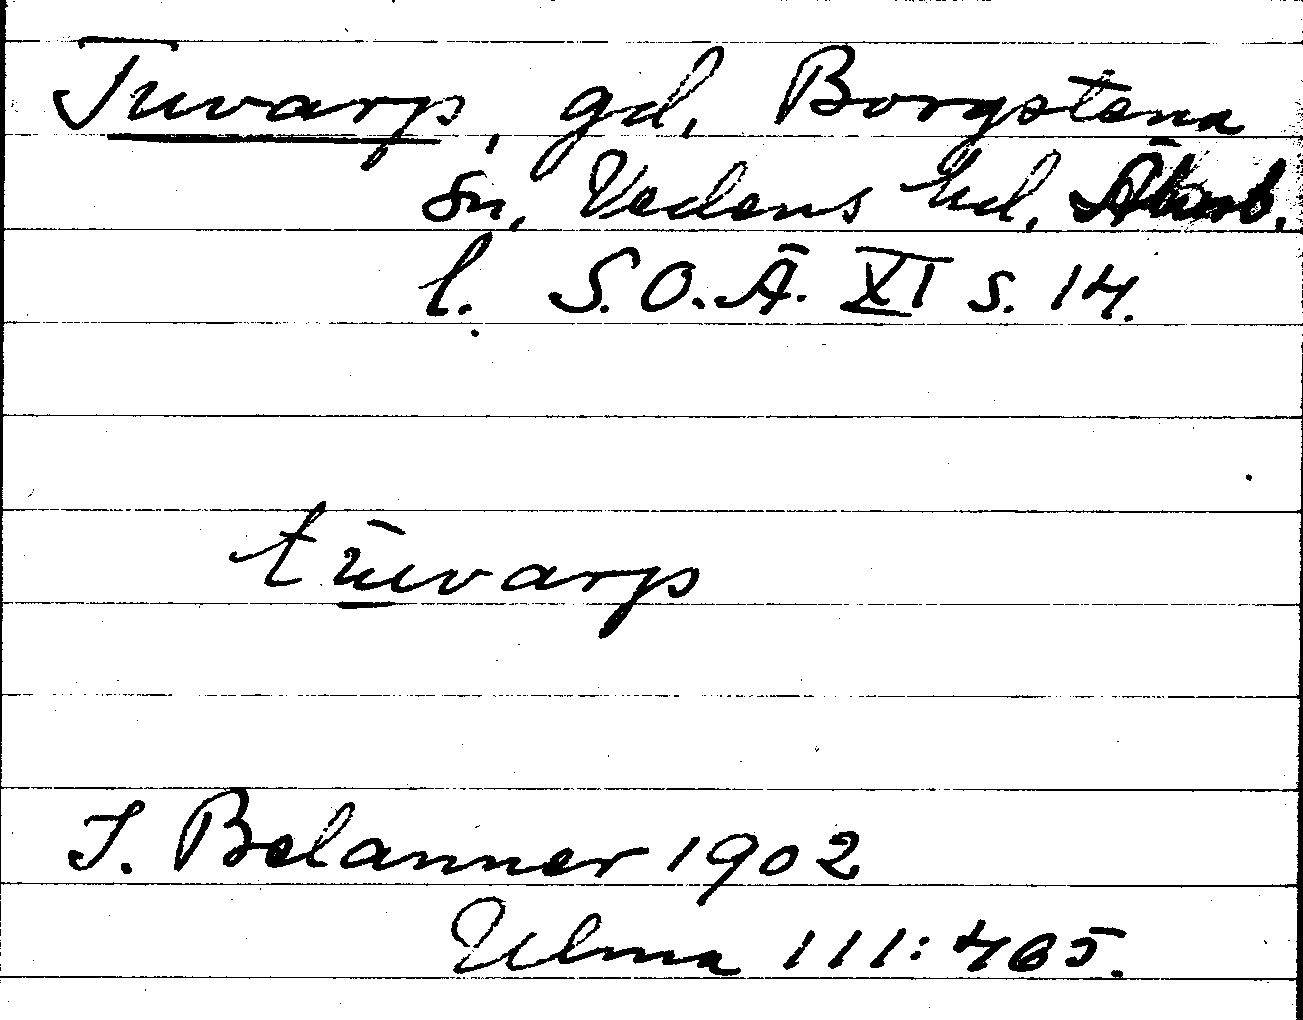 Tuvarp, gd, Borgstena
sn, Vedens hd, Älvsb.
l. S.O.Ä. XI s. 14.
tūvarp
J. Belanner 1902
Ulma 111:465.